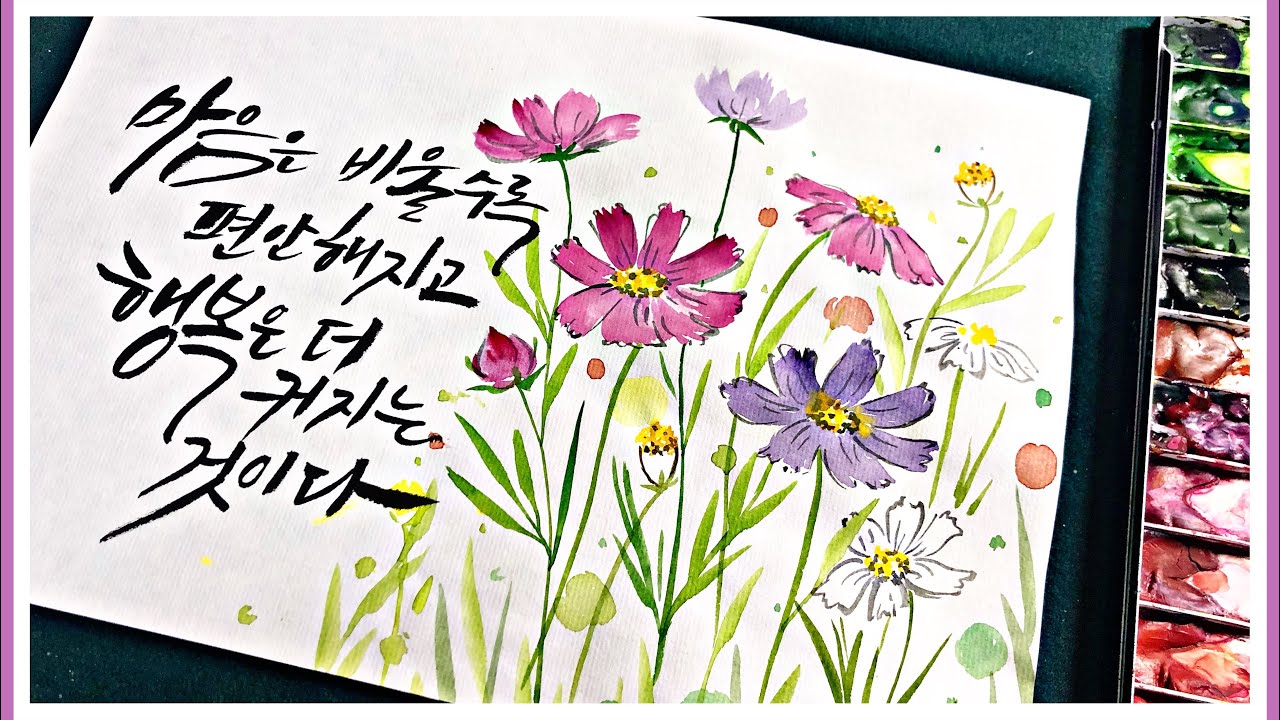 마음은 비울수록
편안해지고
행복은 더
커지는
것이다